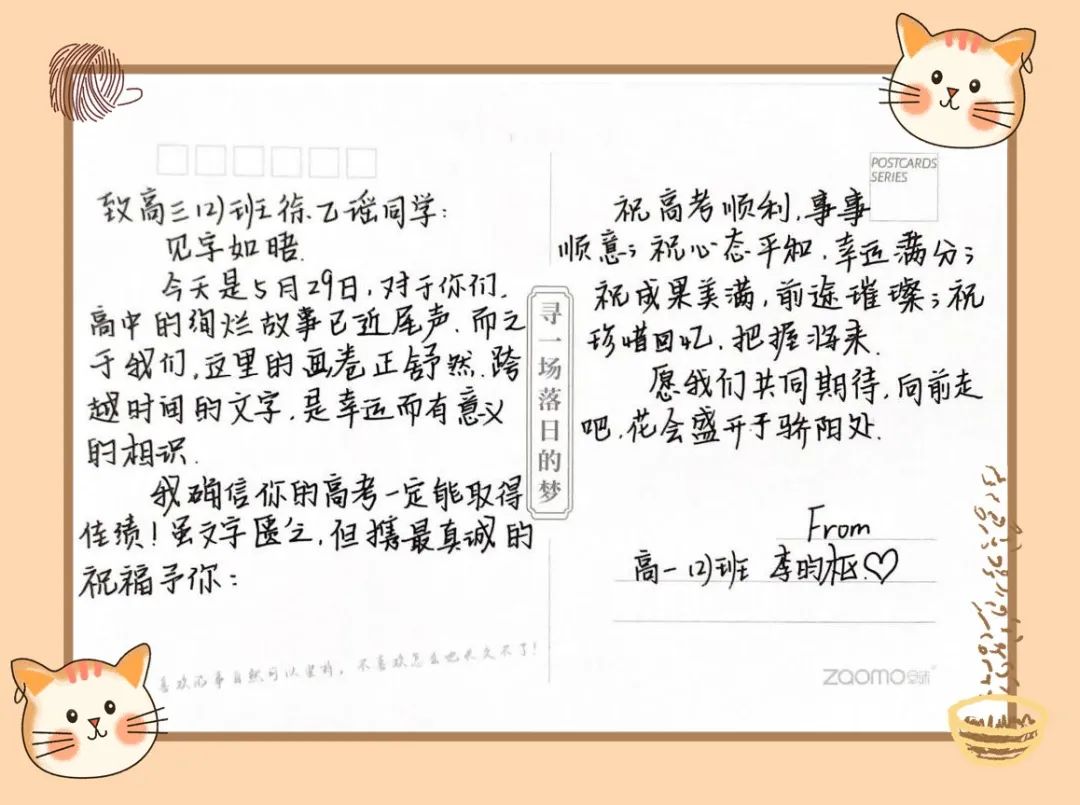 致高三(2)班徐乙谣同学:
见字如晤.
今天是5月29日,对于你们,
高中的绚烂故事已近尾声.而之
于我们,这里的画卷正舒然.跨
越时间的文字,是幸运而有意义
的相识.
我确信你的高考一定能取得
佳绩!虽文字匮乏,但携最真诚的
祝福予你:
喜欢的事自然可以坚持,不喜欢怎么也长久不了!
寻一场落日的梦
POSTCARDS
SERIES
祝高考顺利,事事
顺意;祝心态平和,幸运满分;
祝成果美满,前途璀璨;祝
珍惜回忆,把握将来.
愿我们共同期待,向前走
吧,花会盛开于骄阳处.
From
高一(2)班 李昀枢♡
zaomo